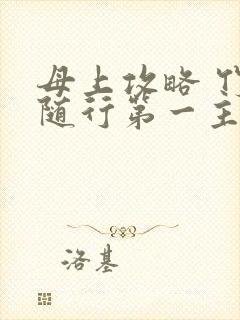 母上攻略
随行第一主
洛基